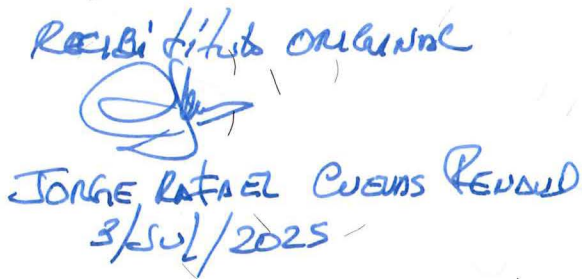 RECIBí título ORIGINAL
JORGE RAFAEL CUEVAS RENAUD
3/JUL/2025